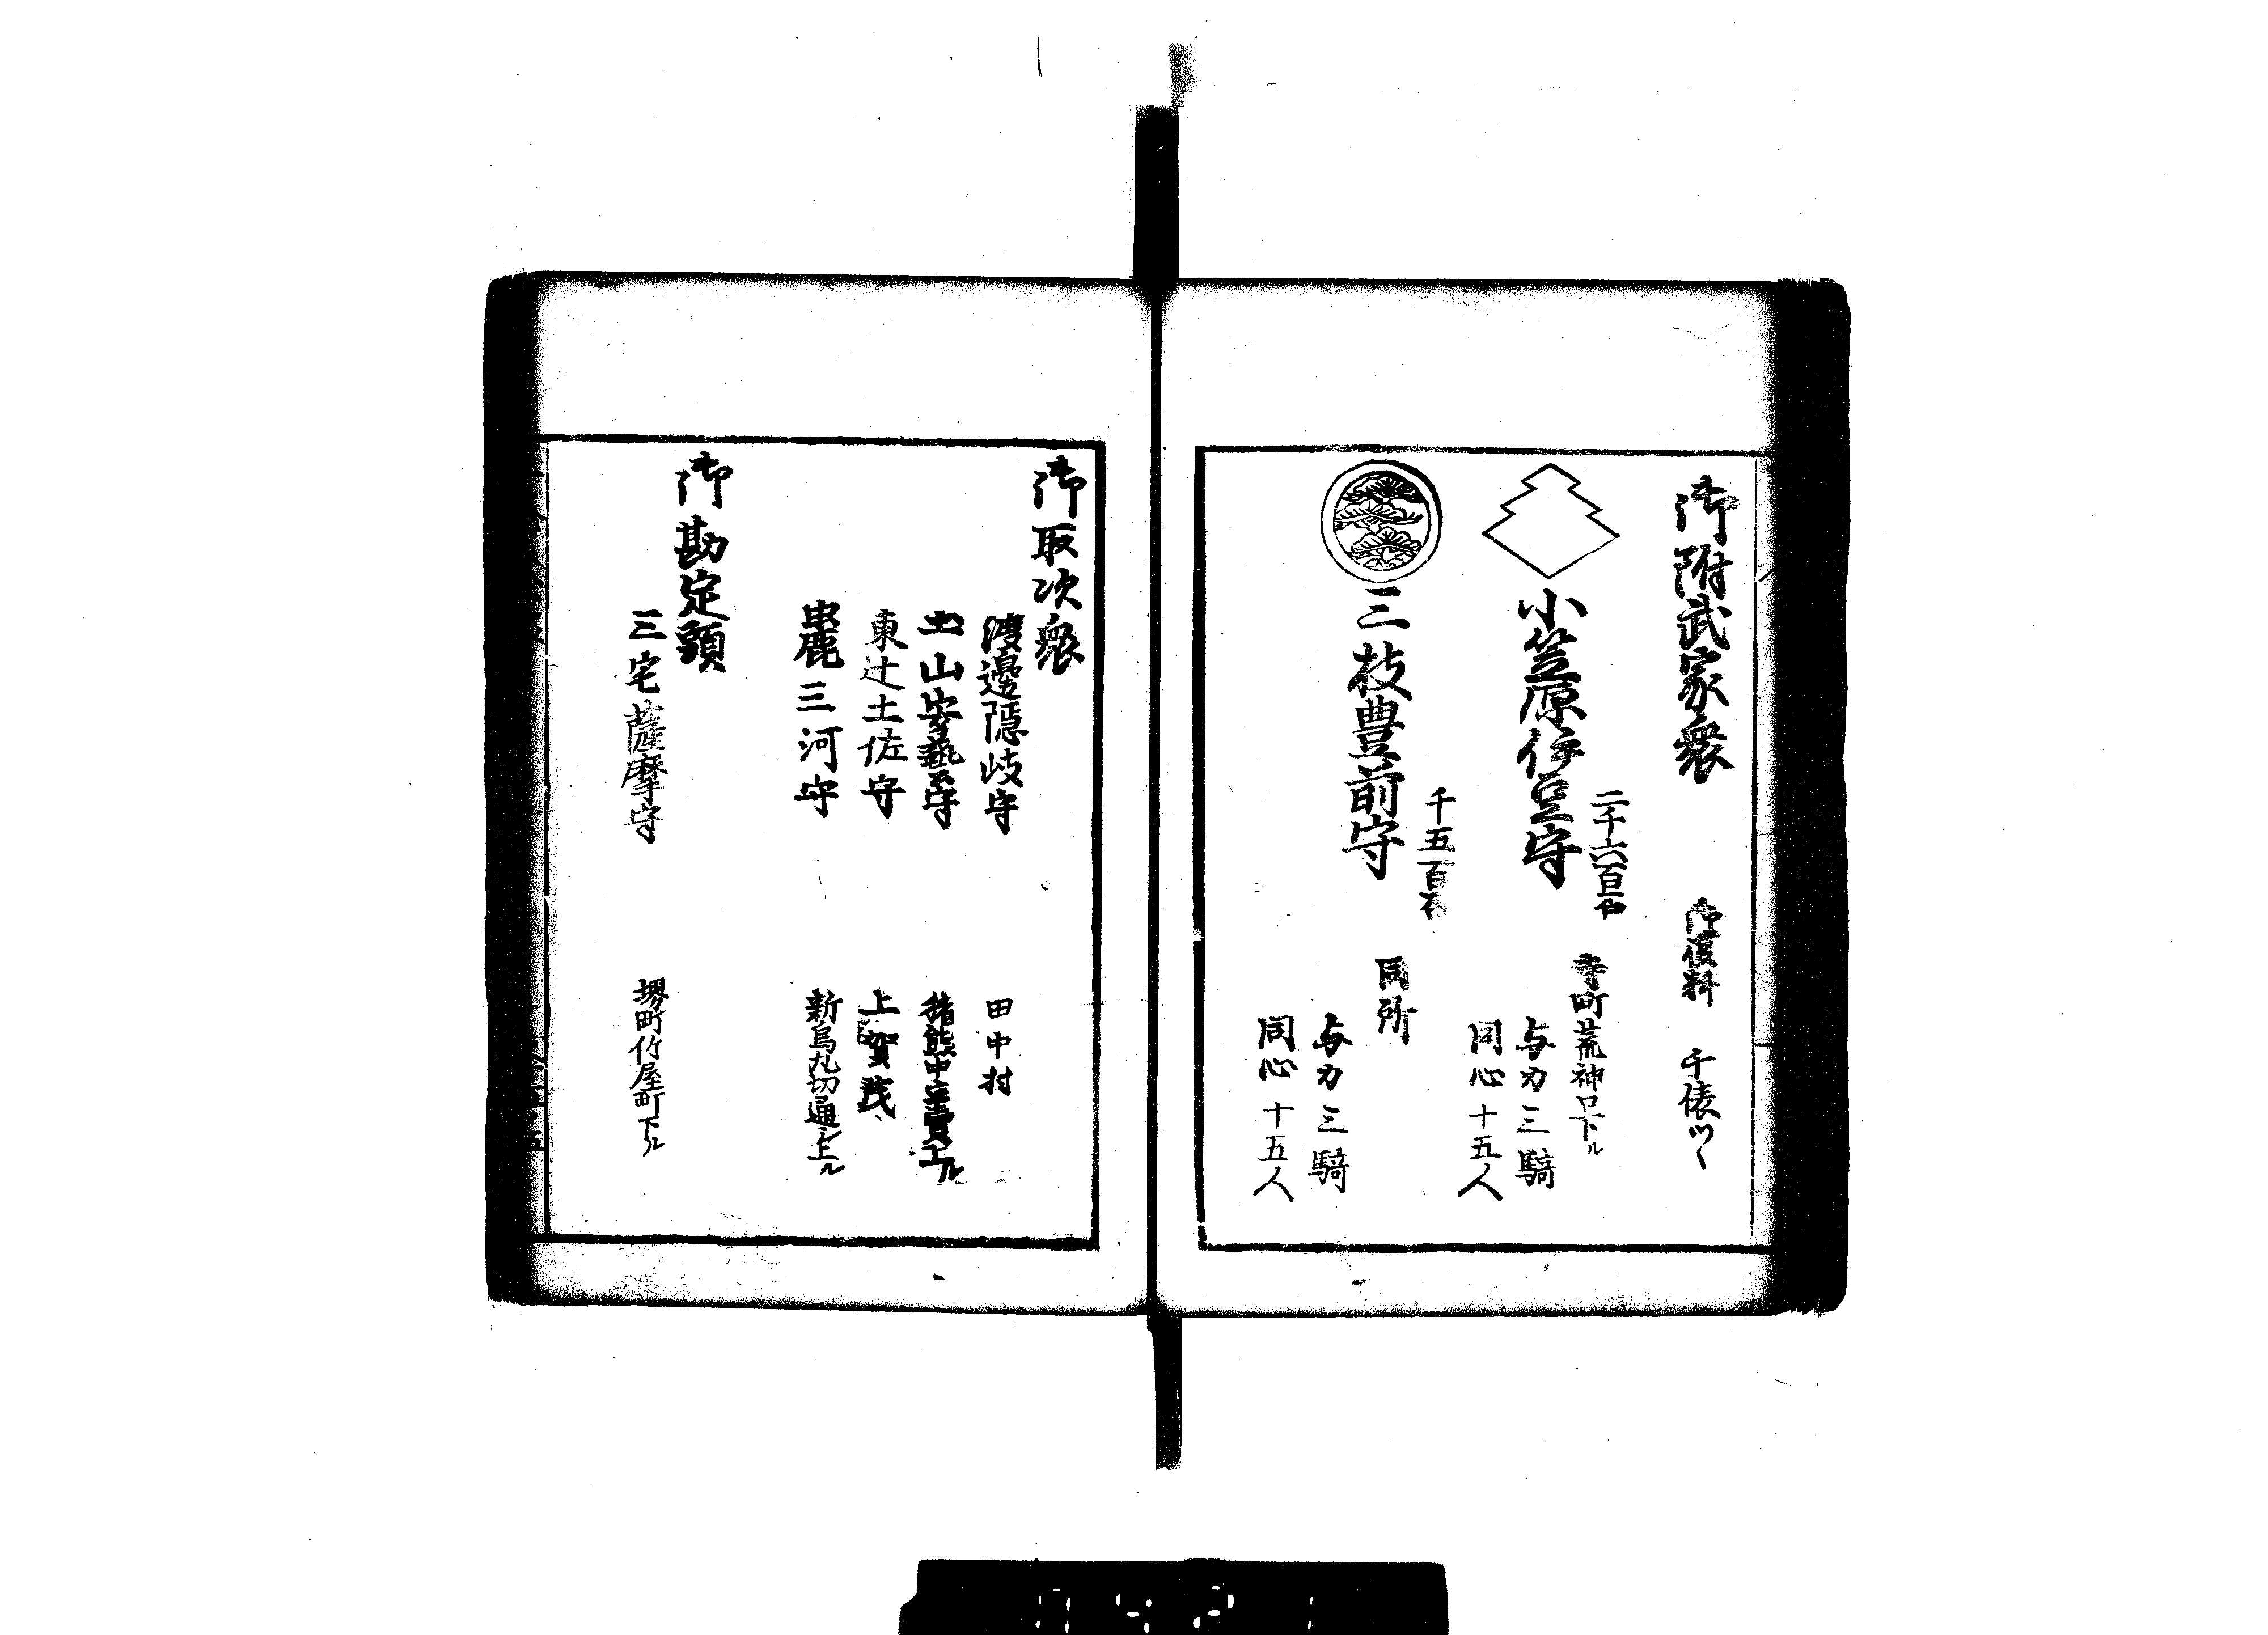 御附武家衆
御役料 千俵ツヽ
二千六百石
小笠原伊豆守
寺町荒神口下ル
与力三騎
同心十五人
千五百石
三枝豊前守
同所
与力三騎
同心十五人
御取次衆
渡邊隠岐守 田中村
土山安藝守 猪熊中立賣上ル
東辻土佐守 上賀茂
麁三河守 新烏丸切通シ上ル
御勘定頭
三宅薩摩守 堺町竹屋町下ル